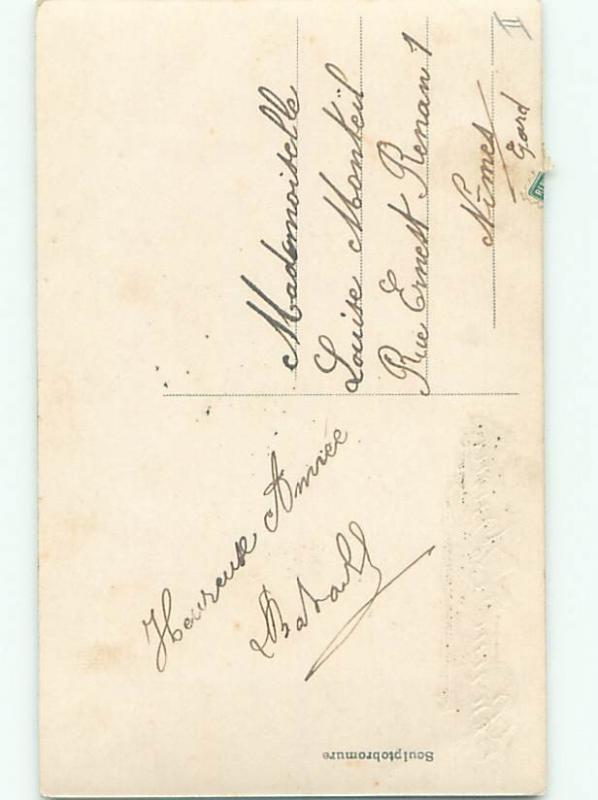 Heureuse Année
Mademoiselle
Louise Monteil
Rue Ernest Renan 1
Nîmes
Gard
Sculptobromure
II